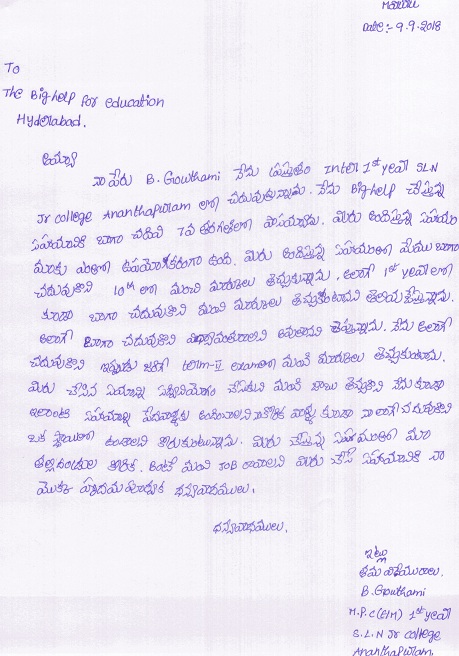 Date:- 9.9.2018
To
The Big-help for education
Hyderabad.
అయ్యా
నా పేరు B. Gowthami నేను ప్రస్తుతం Inter 1st year SLN
Jr college Ananthapuram లో చదువుతున్నాను. నేను Big help చేస్తున్న
సహాయానికి బాగా చదివి 7వ తరగతిలో పాసయ్యాను. మీరు అందిస్తున్న సహాయం
మాకు ఎంతో ఉపయోగకరంగా ఉంది. మీరు అందిస్తున్న సహాయంతో మేము బాగా
చదువుకొని 10th లో మంచి మార్కులు తెచ్చుకున్నాను. అలాగే 1st year లో
కూడా బాగా చదువుకొని మంచి మార్కులు తెచ్చుకుంటానని తెలియచేస్తున్నాను.
అలాగే బాగా చదువుకొని అవుతానని చెప్తున్నాను. నేను అలాగే
చదువుకొని ఇప్పుడు జరిగే term-II exam లో మంచి మార్కులు తెచ్చుకుంటాను.
మీరు చేసిన సహాయాన్ని సద్వినియోగం చేసుకుని మంచి జాబు తెచ్చుకొని నేను కూడా
ఇలాంటి సహాయాన్ని పేదవాళ్ళకు అందించాలని నా కోరిక వాళ్ళు కూడా నా లాగే చదువుకొని
ఒక స్థాయిలో ఉండాలని కోరుకుంటున్నాను. మీరు చేస్తున్న సహాయంతో మా
తల్లిదండ్రుల కోరిక. అంటే మంచి JOB రావాలని మీరు చేసే సహాయానికి నా
మొక్క హృదయపూర్వక ధన్యవాదములు.
ధన్యవాదములు.
ఇట్లు
B. Gowthami
M.P.C(E/M) 1st year
S.L.N Jr college
Ananthapuram.